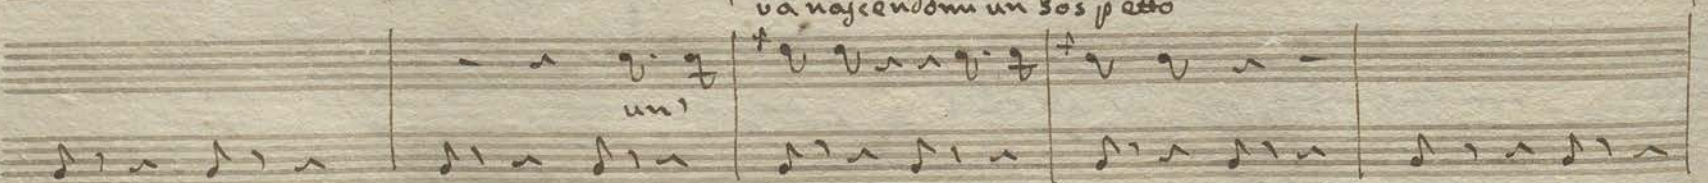 va nascendomi un sospetto
un'